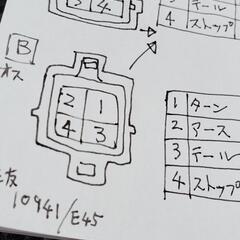 3 テール
4 ストップ
4 3
B
オス
2 1
4 3
1 ターン
2 アース
3 テール
4 ストップ
10941/E45